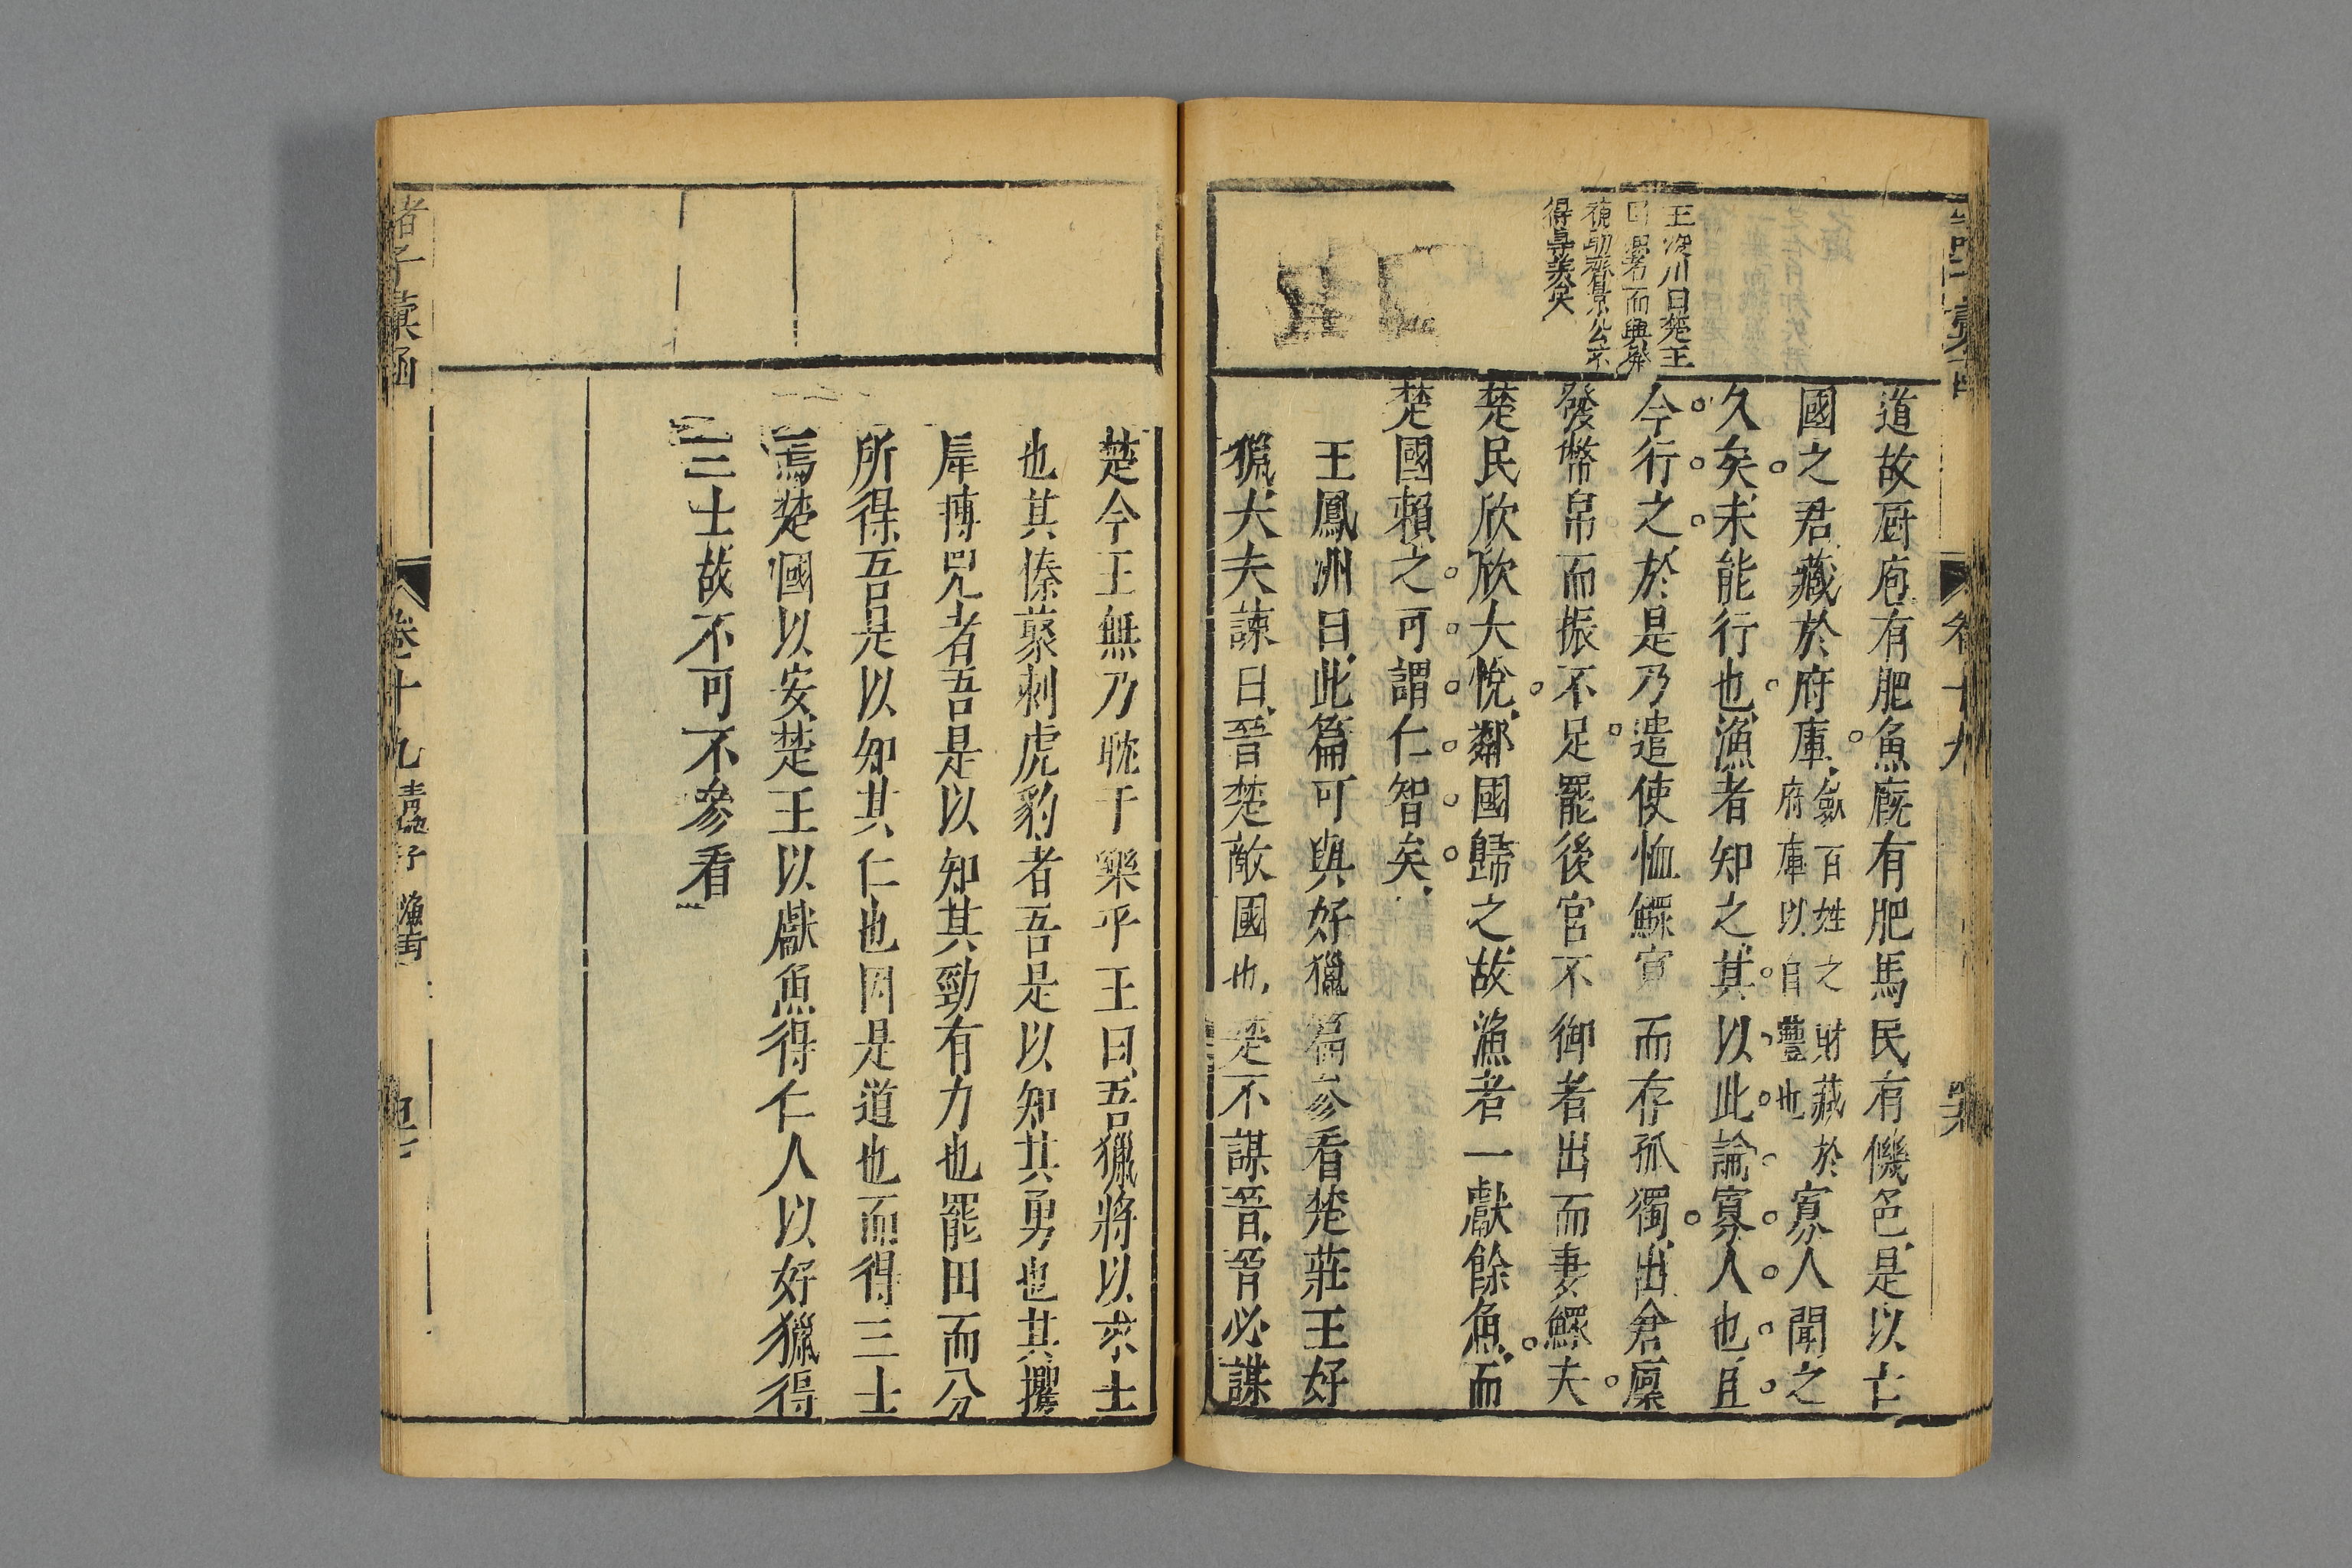 王浚川曰楚王
因漁者而興發
補助齊景公不
得專美矣
道故厨庖有肥魚廐有肥馬民有饑色是以亡
國之君藏於府庫斂百姓之財藏於府庫以自豐也寡人聞之
久矣未能行也漁者知之其以此諭寡人也且
今行之於是乃遣使恤鰥寡而存孤獨出倉廪
發幣帛而振不足罷後宮不御者出而妻鰥夫
楚民欣欣大悅鄰國歸之故漁者一獻餘魚而
楚國賴之可謂仁智矣
王鳳洲曰此篇可與好獵篇參看楚莊王好
獵大夫諫曰晉楚敵國也楚不謀晉晉必謀
楚今王無乃耽于樂乎王曰吾獵將以求士
也其榛藂刺虎豹者吾是以知其勇也其攫
犀搏兕者吾是以知其勁有力也罷田而分
所得吾是以知其仁也因是道也而得三士
焉楚國以安楚王以獻魚得仁人以好獵得
三士故不可不參看
諸子彙函
卷十九